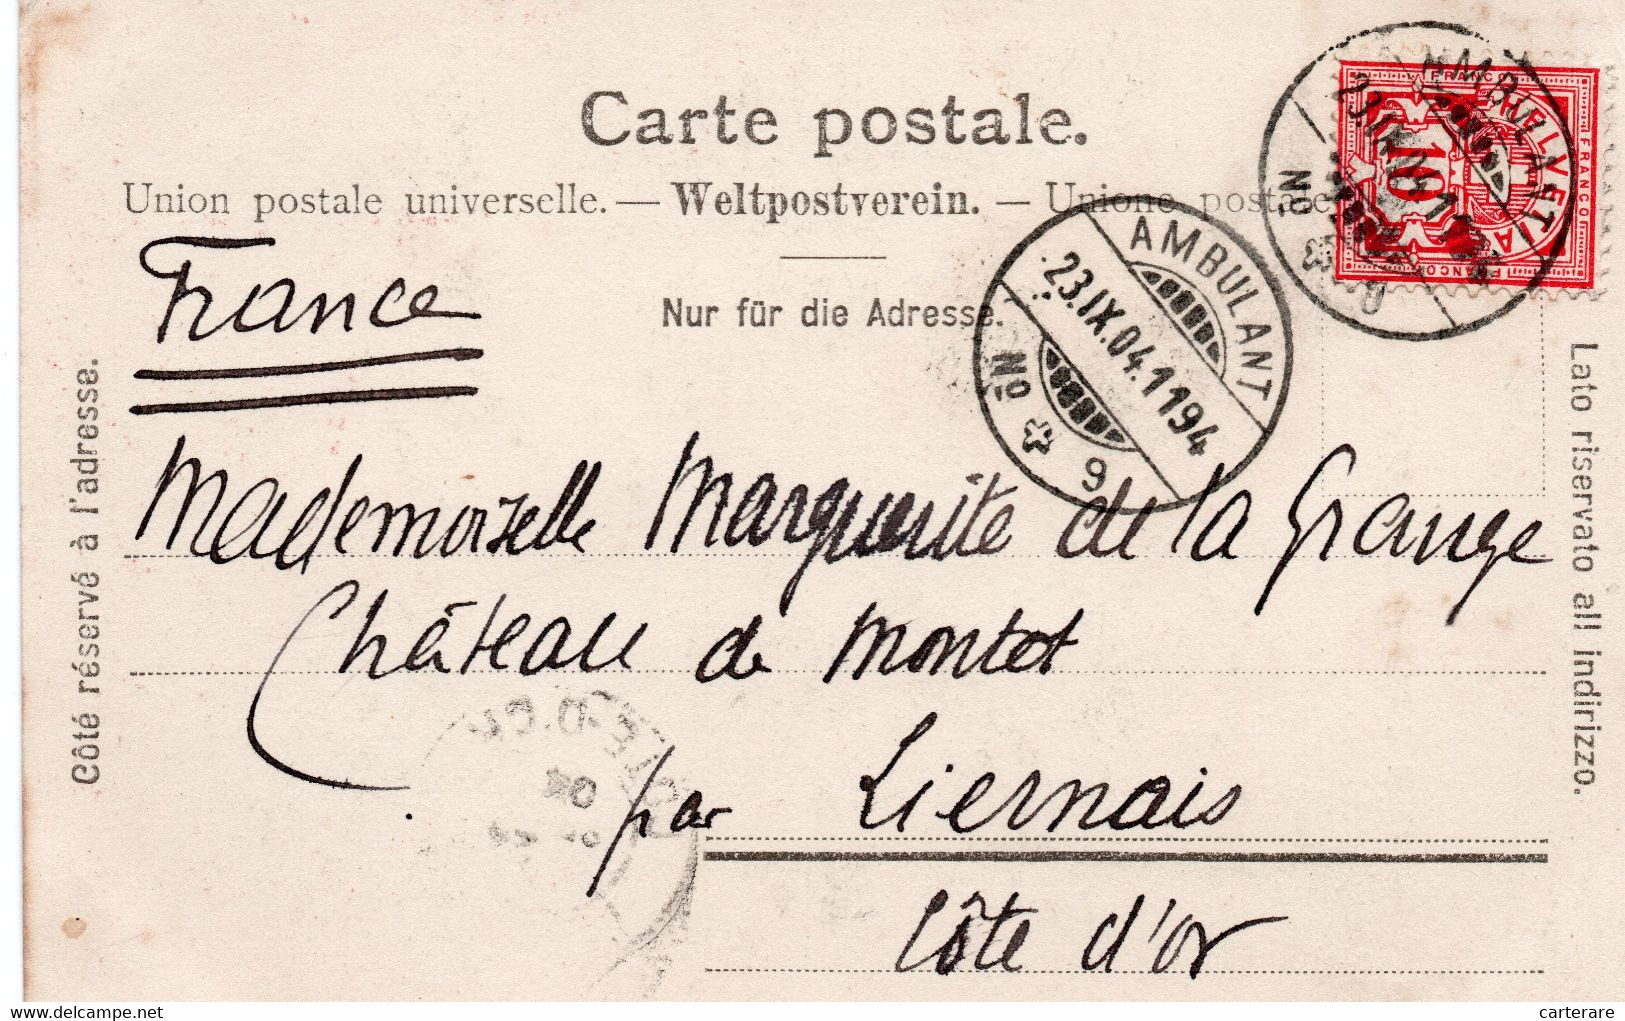 Carte postale.
Union postale universelle. — Weltpostverein. — Unione postale
Nur für die Adresse.
France
Côté réservé à l'adresse.
Lato riservato all indirizzo.
AMBULANT
23.IX.04.1194
No 9
AMBULANT
No
HELVETIA
FRANCO
FRANCO
FRANCO
10
Mademoiselle Marguerite de la Grange
Château de Montot
par Liernais
Côte d'or
www.delcampe.net
carterare